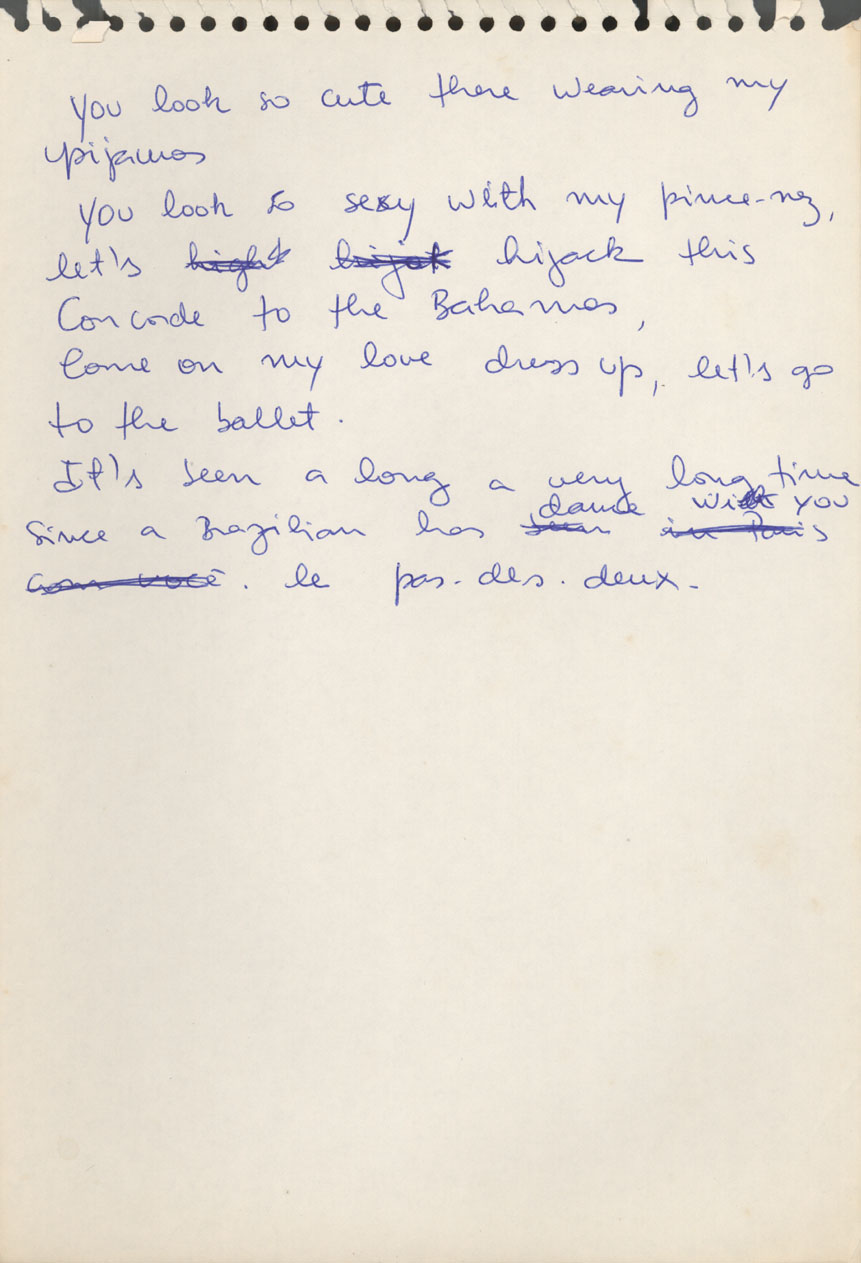 You look so cute there wearing my
pijamas
You look so sexy with my pince-nez,
let's hijack this
Concorde to the Bahamas,
Come on my love dress up, let's go
to the ballet.
It's been a long a very long time
dance with you
Since a Brazilian has been in Paris
com você. le pas-des-deux-